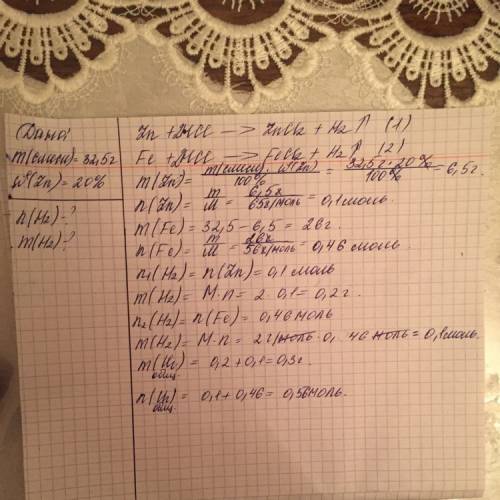 Дано:
m(смеси) = 32,5г
W(Zn) = 20%
n(H2) - ?
m(H2) - ?
Zn + 2HCl —> ZnCl2 + H2↑ (1)
Fe + 2HCl —> FeCl2 + H2↑ (2)
m(Zn) = m(смеси) · W(Zn) / 100% = 32,5г · 20% / 100% = 6,5г.
n(Zn) = m / M = 6,5г / 65г/моль = 0,1 моль.
m(Fe) = 32,5 - 6,5 = 26г.
n(Fe) = m / M = 26г / 56г/моль = 0,46 моль.
n1(H2) = n(Zn) = 0,1 моль
m(H2) = M·n = 2 · 0,1 = 0,2г.
n2(H2) = n(Fe) = 0,46 моль
m(H2) = M·n = 2г/моль · 0,46 моль = 0,1 моль.
m(H2) общ. = 0,2 + 0,1 = 0,3г.
n(H2) общ. = 0,1 + 0,46 = 0,56 моль.